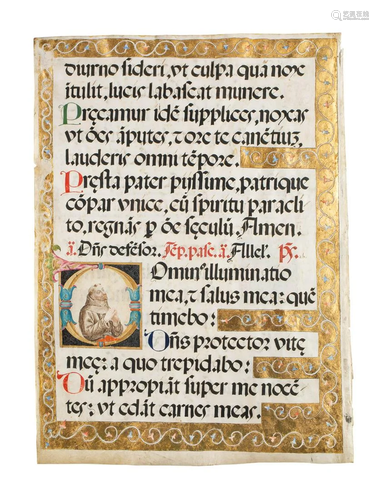 diurno sideri, vt culpa quā nox
ītulit, lucis labascat munere.
Pręcamur idē supplices, noxas
vt ōēs āputes, τ ore te canētiuʒ,
lauderis omni tēpore.
Pręsta pater pyssime, patrique
cōpar vnice, cū spiritu paracli
to, regnās p ōē sęculū. Amen.
ā Dn̄s defēsor. Tēp. pasc. ā Allel. ps.
Omīn' illuminatio
mea, τ salus mea: quē
timebo:
Dn̄s protector vitę
meę: a quo trepidabo:
Dū appropiāt super me nocē
tes: vt edāt carnes meas.